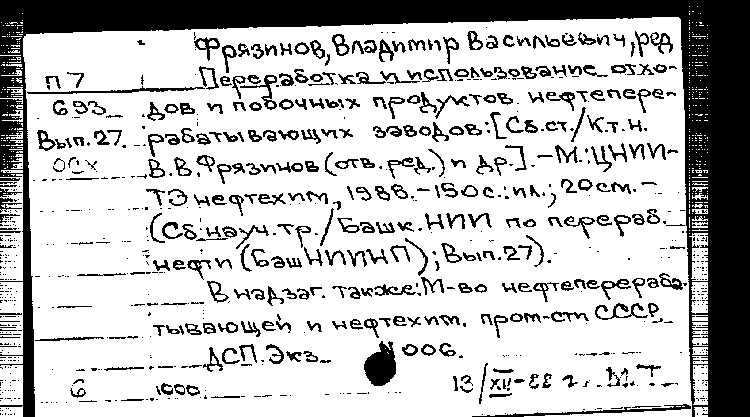 Фрязинов, Владимир Васильевич, ред.
П 7 Переработка и использование отхо-
693 дов и побочных продуктов нефтепере-
Вып.27. рабатывающих заводов: [Сб.ст./К.т.н.
ОСХ В.В.Фрязинов (отв.ред.) и др.]. - М.: ЦНИИ-
ТЭнефтехим, 1988. - 150 с.: ил.; 20 см. -
(Сб.науч.тр./Башк.НИИ по перераб.
нефти (БашНИИНП); Вып.27).
В надзаг. также: М-во нефтеперераба-
тывающей и нефтехим. пром-сти СССР.
ДСП. Экз. N 006.
6 1000. 13/XII-88 г. М.Т.